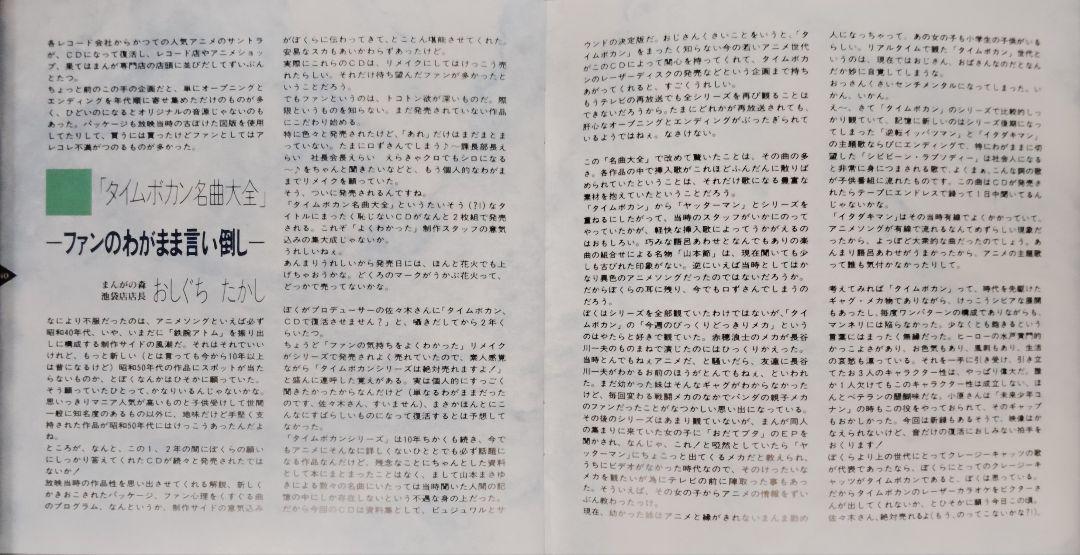 各レコード会社からかつての人気アニメのサントラ
が、CDになって復活し、レコード店やアニメショッ
プ、果てはまんが専門店の店頭に並びだしてずいぶん
とたつ。
ちょっと前のこの手の企画だと、単にオープニングと
エンディングを年代順に寄せ集めただけのものが多
く、ひどいのになるとオリジナルの音源じゃないのも
あった。パッケージも放映当時の古ぼけた図版を使用
してたりして、買うには買ったけどファンとしてはア
レコレ不満がつのるものが多かった。
「タイムボカン名曲大全」
―ファンのわがまま言い倒し―
まんがの森
池袋店店長 おしぐち たかし
なにより不服だったのは、アニメソングといえば必ず
昭和40年代、いや、いまだに「鉄腕アトム」を振り出
しに構成する制作サイドの風潮だ。それはそれでいい
けれど、もっと新しい（とは言っても今から10年以上
は昔になるけど）昭和50年代の作品にスポットが当た
らないものか、とぼくなんかはひそかに願っていた。
そう願っていたひとって、かなりいるんじゃないかな。
思いっきりマニア人気が高いものと子供受けして世間
一般に知名度のあるもの以外に、地味だけど手堅く支
持された作品が昭和50年代にはけっこうあったんだよ
ね。
ところが、なんと、この1、2年の間にぼくらの願い
にしっかり答えてくれたCDが続々と発売されたでは
ないか！
放映当時の作品性を思い出させてくれる解説、新しく
かきおこされたパッケージ、ファン心理をくすぐる曲
のプログラム、なんというか、制作サイドの意気込み
がぼくらに伝わってきて、とことん堪能させてくれた。
安易なスカもあいかわらずあったけど。
実際にこれらのCDは、リメイクにしてはけっこう売
れたらしい。それだけ待ち望んだファンが多かったと
いうことだろう。
でもファンというのは、トコトン欲が深いものだ。際
限というものを知らない。まだ発売されていない作品
にこだわり始める。
特に色々と発売されたけど、「あれ」だけはまだまとま
っていない。たまに口ずさんでしまう♪～課長部長え
らい 社長会長えらい えらきゃクロでもシロになる
～♪をちゃんと聞きたいなどと、もう個人的なわがま
まででリメイクを願っていた。
そう、ついに発売されるんですね。
「タイムボカン名曲大全」というたいそう（？！）なタ
イトルにまったく恥じないCDがなんと2枚組で発売
される。これぞ「よくわかった」制作スタッフの意気
込みの集大成じゃないか。
うれしいねぇ。
あんまりうれしいから発売日には、ほんと花火でも上
げちゃおうかな。どくろのマークがうかぶ花火って、
どっかで売ってないかな。
ぼくがプロデューサーの佐々木さんに「タイムボカン、
CDで復活させません？」と、囁きだしてから2年く
らいたつ。
ちょうど「ファンの気持ちをよくわかった」リメイク
がシリーズで発売されよく売れていたので、素人感覚
ながら「タイムボカンシリーズは絶対売れますよ／」
と盛んに連呼した覚えがある。実は個人的にすっごく
聞きたかったからなんだけど（単なるわがままだった
のです、佐々木さん、すいません）、まさかほんとにこ
んなにすばらしいものになって復活するとは予想して
なかった。
「タイムボカンシリーズ」は10年ちかくも続き、今で
もアニメにそんなに詳しくないひとでも必ず話題に
なる作品なんだけど、残念なことにちゃんとした資料
として本にまとまったことはなく、まして山本まさゆ
きによる数々の名曲にいたっては当時聞いた人間の記
憶の中にしか存在しないという不遇な身の上だった。
だから今回のCDは資料集として、ビュジュアルとサ
ウンドの決定版だ。おじさんくさいことをいうと、「タ
イムボカン」をまったく知らない今の若いアニメ世代
がこのCDによって関心を持ってくれて、タイムボカ
ンのレーザーディスクの発売などという企画まで持ち
あがってくれると、すごくうれしい。
もうテレビの再放送でも全シリーズを再び観ることは
できないだろうから。たまにどれかが再放送されても、
肝心なオープニングとエンディングがぶったぎられて
いるようではねぇ。なさけない。
この「名曲大全」で改めて驚いたことは、その曲の多
さ。各作品の中で挿入歌がこれほどふんだんに散りば
められていたということは、それだけ歌になる豊富な
素材を抱えていたということだろう。
「タイムボカン」から「ヤッターマン」とシリーズを
重ねるにしたがって、当時のスタッフがいかにのって
やっていたかが、軽快な挿入歌によってうかがえるの
はおもしろい。巧みな語呂あわせとなんでもありの楽
曲の組合せによる名物「山本節」は、現在聞いても少
しも古びれた印象がない。逆にいえば当時としてはか
なり異色のアニメソングだったのではないだろうか。
だからぼくらの耳に残り、今でも口ずさんでしまうの
だろう。
ぼくはシリーズを全部観ていたわけではないが、「タイ
ムボカン」の「今週のびっくりどっきりメカ」という
のはやたらと好きで観ていた。赤穂浪士のメカが長谷
川一夫のものまねで演じたのにはひっくりかえった。
当時とんでもねぇアニメだ、と騒いだら、友達に長谷
川一夫がわかるお前のほうがとんでもねぇ、といわれ
た。まだ幼かった妹はそんなギャグがわからなかった
けど、毎回変わる戦闘メカのなかでパンダの親子メカ
のファンだったことがなつかしい思い出になっている。
その後のシリーズはあまり観ていないが、まんが同人
の集まりに来ていた女の子に「おだてブタ」のEPを
聞かされ、なんじゃ、これ／と唖然としていたら「ヤ
ッターマン」にちょこっと出てくるメカだと教えられ、
うちにビデオがなかった時代なので、そのけったいな
メカを観たいが為にテレビの前に陣取った事もあっ
た。そういえば、その女の子からアニメの情報をずい
ぶん教わったっけ。
現在、幼かった妹はアニメと縁がきれないまんま勤め
人になっちゃって、あの女の子も小学生の子供がいる
らしい。リアルタイムで観た「タイムボカン」世代と
いうのは、現在ではおじさん、おばさんなのだとなん
だか妙に自覚してしまうな。
おっさんくさいセンチメンタルになってしまった。い
かん、いかん。
え～、さて「タイムボカン」のシリーズで比較的しっ
かり観ていて、記憶に新しいのはシリーズ後期になっ
てしまった「逆転イッパツマン」と「イタダキマン」
の主題歌ならびにエンディングで、特にわがままに切
望した「シビビーン・ラプソディー」は社会人になる
と非常に身につまされる歌で、よくまぁ、こんな調の歌
が子供番組に流れたものです。この曲はCDが発売さ
れたらテープにエンドレスで録って1日中聞いてるん
じゃないかな。
「イタダキマン」はその当時有線でよくかかっていて。
アニメソングが有線で流れるなんてめずらしい現象だ
ったから、よっぽど大衆的な曲だったのでしょう。あ
んまり語呂あわせがうまかったから、アニメの主題歌
って誰も気付かなかったりして。
考えてみれば「タイムボカン」って、時代を先駆けた
ギャグ・メカ物でありながら、けっこうシビアな展開
もあったし、毎度ワンパターンの構成でありながらも、
マンネリには陥らなかった。少なくとも飽きるという
言葉にはまったく無縁だった。ヒーローの水戸黄門的
かっこよさがあり、お色気もあり、風刺もあり、生活
の哀愁も漂っている。それを一手に引き受け、引き立
てたお3人のキャラクター性は、やっぱり偉大だ。誰
か1人欠けてもこのキャラクター性は成立しない、ほ
んとベテランの醍醐味だな。小原さんは「未来少年コ
ナン」の時もこの役をやっておられて、そのギャップ
もおかしかった。今回は新録もあるそうで、映像はか
なえられないけど、音だけの復活におしみない拍手を
おくります！
ぼくらより上の世代にとってクレージーキャッツの歌
が代表であったなら、ぼくらにとってのクレージーキ
ャッツがタイムボカンであると、ぼくは思っている。
だからタイムボカンのレーザーカラオケをビクターさ
んが出してくれないか、とひそかに願う今日この頃。
佐々木さん、絶対売れるよ（もう、のってこないかな？！）。